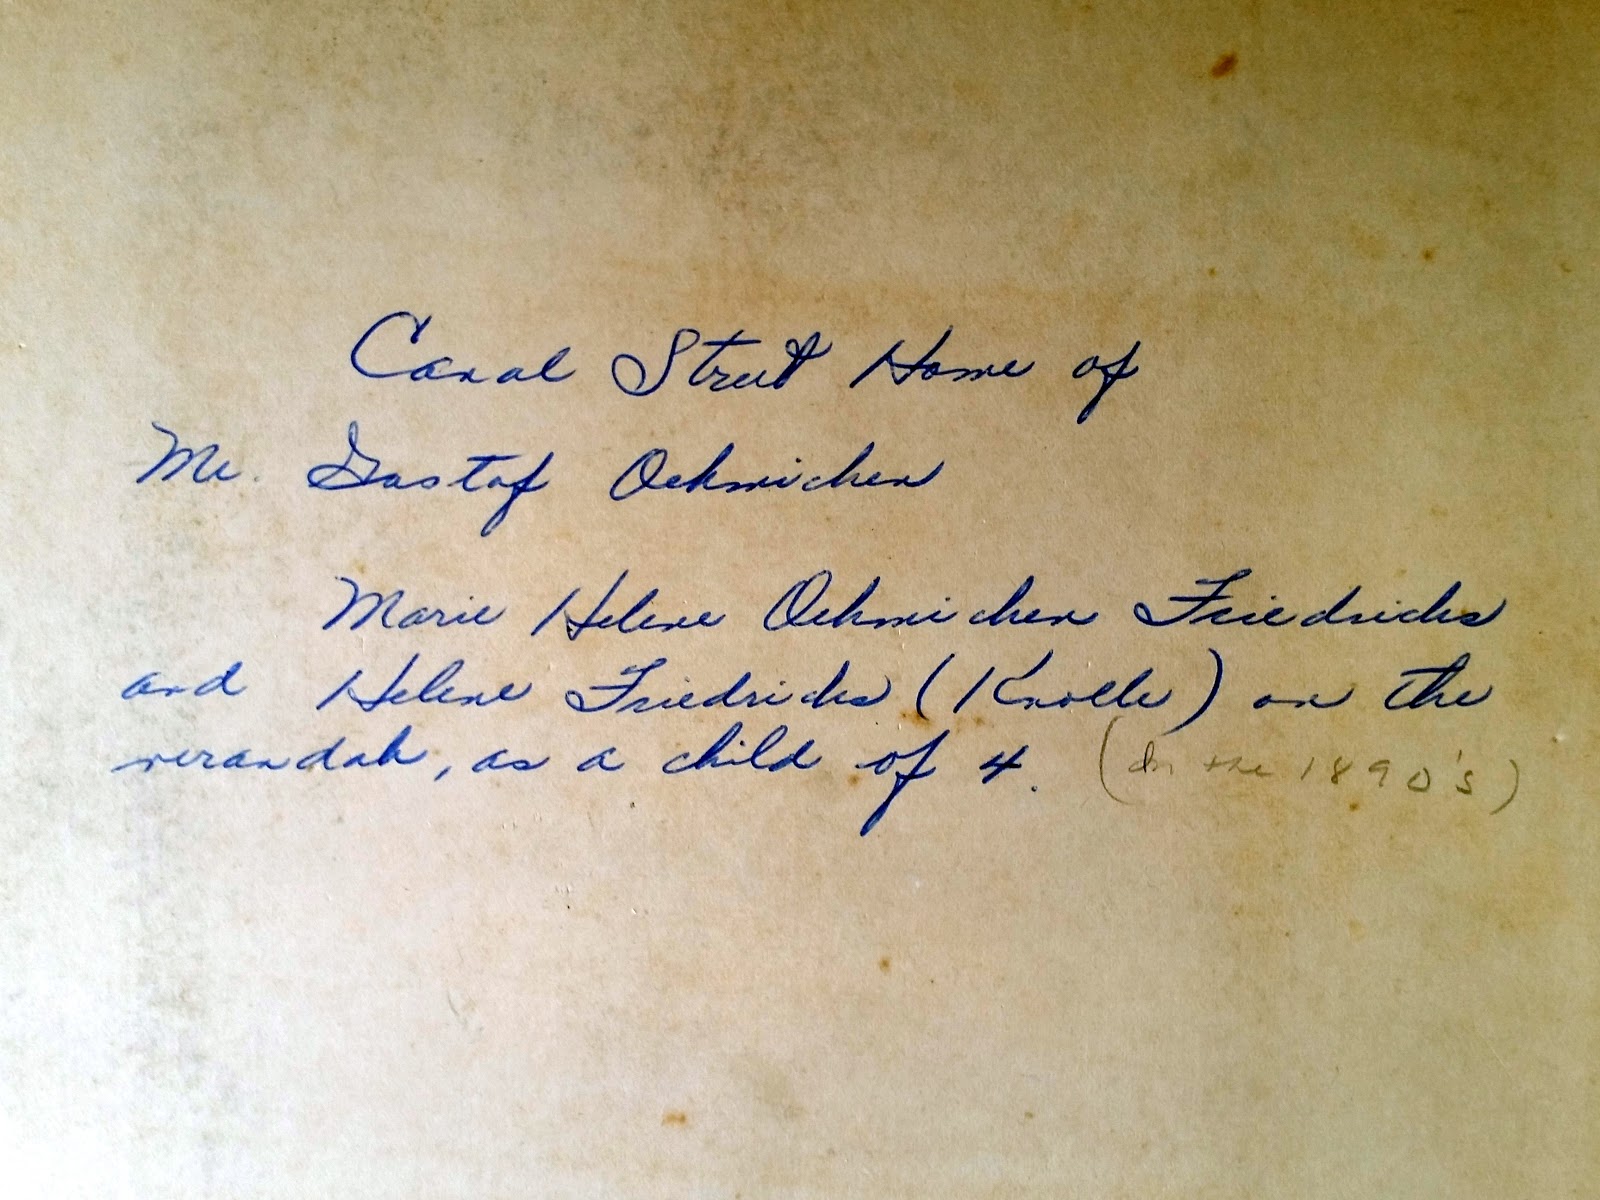 Canal Street Home of
Mr. Gustof Oehmichen
Marie Helene Oehmichen Friedrichs
and Helene Friedrichs (Knolle) on the
verandah, as a child of 4. (In the 1890's)